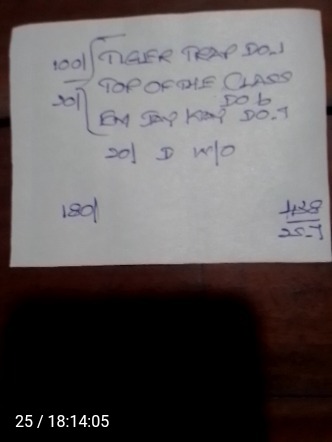 100/ TIGER TRAP DO.1
20/ TOP OF THE CLASS
DO.6
EM JAY KAY DO.9
20/ D W/O
180/
438
25-7
25 / 18:14:05